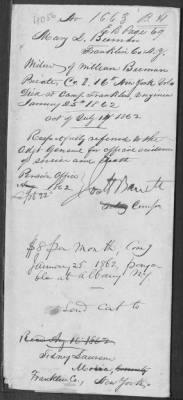 No 1663 B. H
Ex B Page 69
Mary L. Beeman
Franklin Co N.Y.
Widow of William Beeman
Private Co I. 16th New York Vols
Died at Camp Franklin Virginia
January 25th 1862
Act of July 14 1862
Respectfully referred to the
Adjt General for official evidence
of service and death
Pension Office
1862
Jos H Barrett
Comr
$8 per Month, Com
January 25, 1862, paya-
ble at Albany NY
Send Cert to
Recd Aug 16 1862
Sidney Lawson
Moira, County
Franklin Co, New York